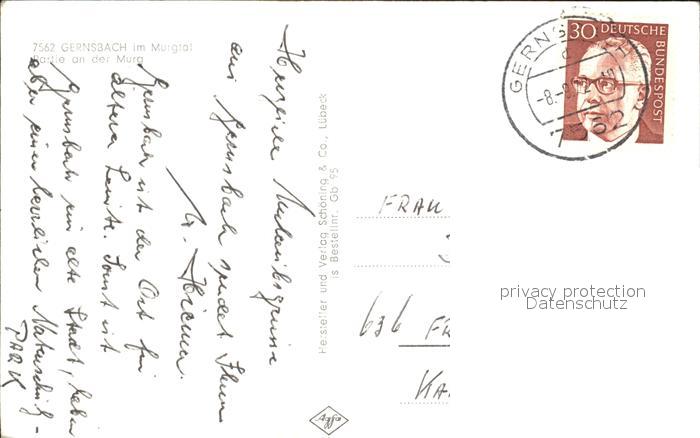 7562 GERNSBACH im Murgtal
Partie an der Murg
Herzliche Urlaubsgrüsse
aus Gernsbach sendet Ihnen
H.
Gernsbach ist der Ort für
ältere Leute. Sonst ist
Gernsbach eine alte Stadt, haben
aber einen herrlichen Naturschutz-
PARK
Hersteller und Verlag Schöning & Co., Lübeck
is Bestellnr. Gb 95
Agfa
GERNSBACH
7562
30 DEUTSCHE
BUNDESPOST
FRAU
636 FR
KA
privacy protection
Datenschutz